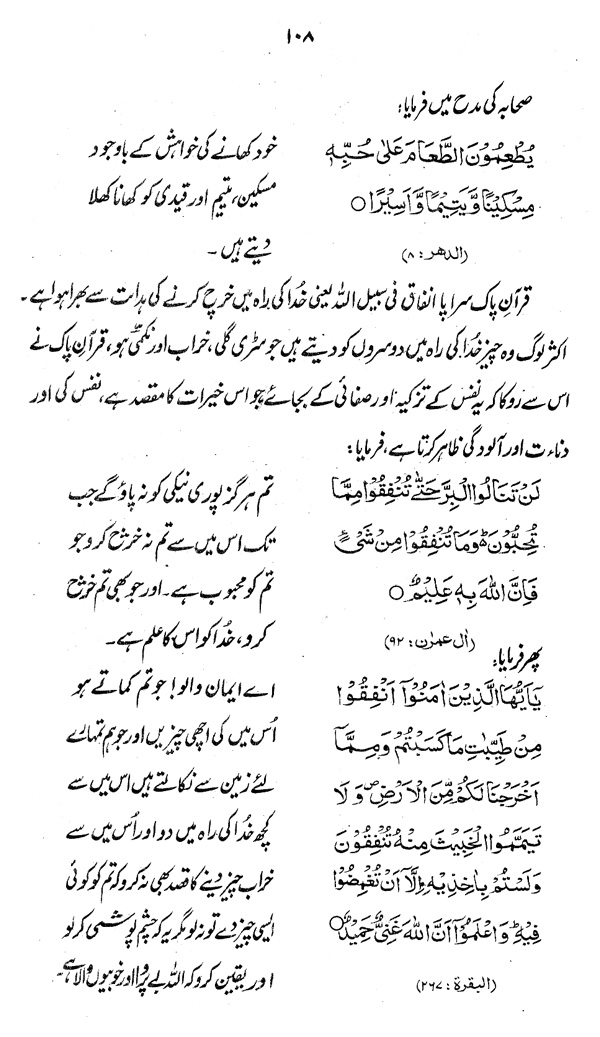 ۱۰۸
صحابہ کی مدح میں فرمایا:
یُطْعِمُوْنَ الطَّعَامَ عَلٰی حُبِّہٖ
مِسْکِیْنًا وَّیَتِیْمًا وَّاَسِیْرًا ○
(الدھر: ۸)
خود کھانے کی خواہش کے باوجود
مسکین، یتیم اور قیدی کو کھانا کھلا
دیتے ہیں ۔
قرآنِ پاک سراپا انفاق فی سبیل اللہ یعنی خُدا کی راہ میں خرچ کرنے کی ہدات سے بھرا ہوا ہے۔
اکثر لوگ وہ چیز خُدا کی راہ میں دوسروں کو دیتے ہیں جو سڑی گلی، خراب اور نکمی ہو، قرآنِ پاک نے
اس سے روکا کہ یہ نفس کے تزکیہ اور صفائی کے بجائے جو اس خیرات کا مقصد ہے، نفس کی اور
دناءت اور آلودگی ظاہر کرتا ہے، فرمایا:
لَنْ تَنَالُوا الْبِرَّ حَتّٰی تُنْفِقُوْا مِمَّا
تُحِبُّوْنَ ؕ وَمَا تُنْفِقُوْا مِنْ شَیْءٍ
فَاِنَّ اللہَ بِہٖ عَلِیْمٌ ○
(اٰل عمرٰن: ۹۲)
تم ہرگز پوری نیکی کو نہ پاؤ گے جب
تک اس میں سے تم نہ خرچ کرو جو
تم کو محبوب ہے۔ اور جو بھی تم خرچ
کرو، خُدا کو اس کا علم ہے۔
پھر فرمایا:
یٰٓاَیُّھَا الَّذِیْنَ اٰمَنُوْٓا اَنْفِقُوْا
مِنْ طَیِّبٰتِ مَا کَسَبْتُمْ وَمِمَّآ
اَخْرَجْنَا لَکُمْ مِّنَ الْاَرْضِ ۪ وَلَا
تَیَمَّمُوا الْخَبِیْثَ مِنْہُ تُنْفِقُوْنَ
وَلَسْتُمْ بِاٰخِذِیْہِ اِلَّآ اَنْ تُغْمِضُوْا
فِیْہِ ؕ وَاعْلَمُوْٓا اَنَّ اللہَ غَنِیٌّ حَمِیْدٌ ○
(البقرۃ: ۲۶۷)
اے ایمان والو! جو تم کماتے ہو
اُس میں کی اچھی چیزیں اور جو ہم تمہارے
لئے زمین سے نکالتے ہیں اس میں سے
کچھ خُدا کی راہ میں دو اور اُس میں سے
خراب چیز دینے کا قصد بھی نہ کرو کہ تم کو کوئی
ایسی چیز دے تو نہ لو مگر یہ کہ چشم پوشی کر لو
اور یقین کرو کہ اللہ بے پروا اور خوبیوں والا ہے۔